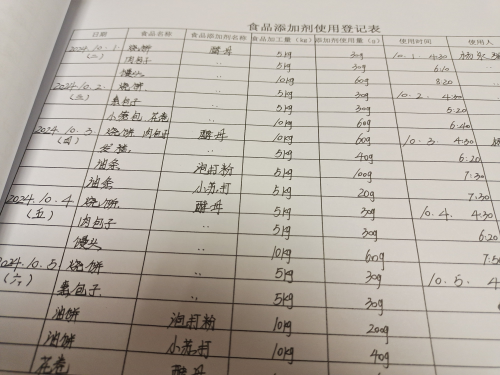 食品添加剂使用登记表
日期 食品名称 食品添加剂名称 食品加工量（kg） 添加剂使用量（g） 使用时间 使用人
2024.10.1.（二） 烧饼 酵母 5kg 30g 10.1. 4:30
肉包子 .. 5kg 30g 6:10
馒头 .. 10kg 60g 8:20
2024.10.2.（三） 烧饼 .. 5kg 30g 10.2. 4:30
素包子 .. 5kg 30g 5:20
小笼包 花卷 .. 10kg 60g 6:40
2024.10.3.（四） 烧饼 肉包子 酵母 10kg 60g 10.3. 4:30
发糕 .. 5kg 40g 6:20
油条 泡打粉 5kg 100g 7:30
油条 小苏打 5kg 20g 7:30
2024.10.4（五） 烧饼 酵母 5kg 30g 10.4. 4:30
肉包子 .. 5kg 30g 6:20
馒头 .. 10kg 60g
2024.10.5（六） 烧饼 .. 5kg 30g 10.5. 4
素包子 .. 5kg 30g
油饼 泡打粉 10kg 200g
油饼 小苏打 10kg 40g
花卷 酵母